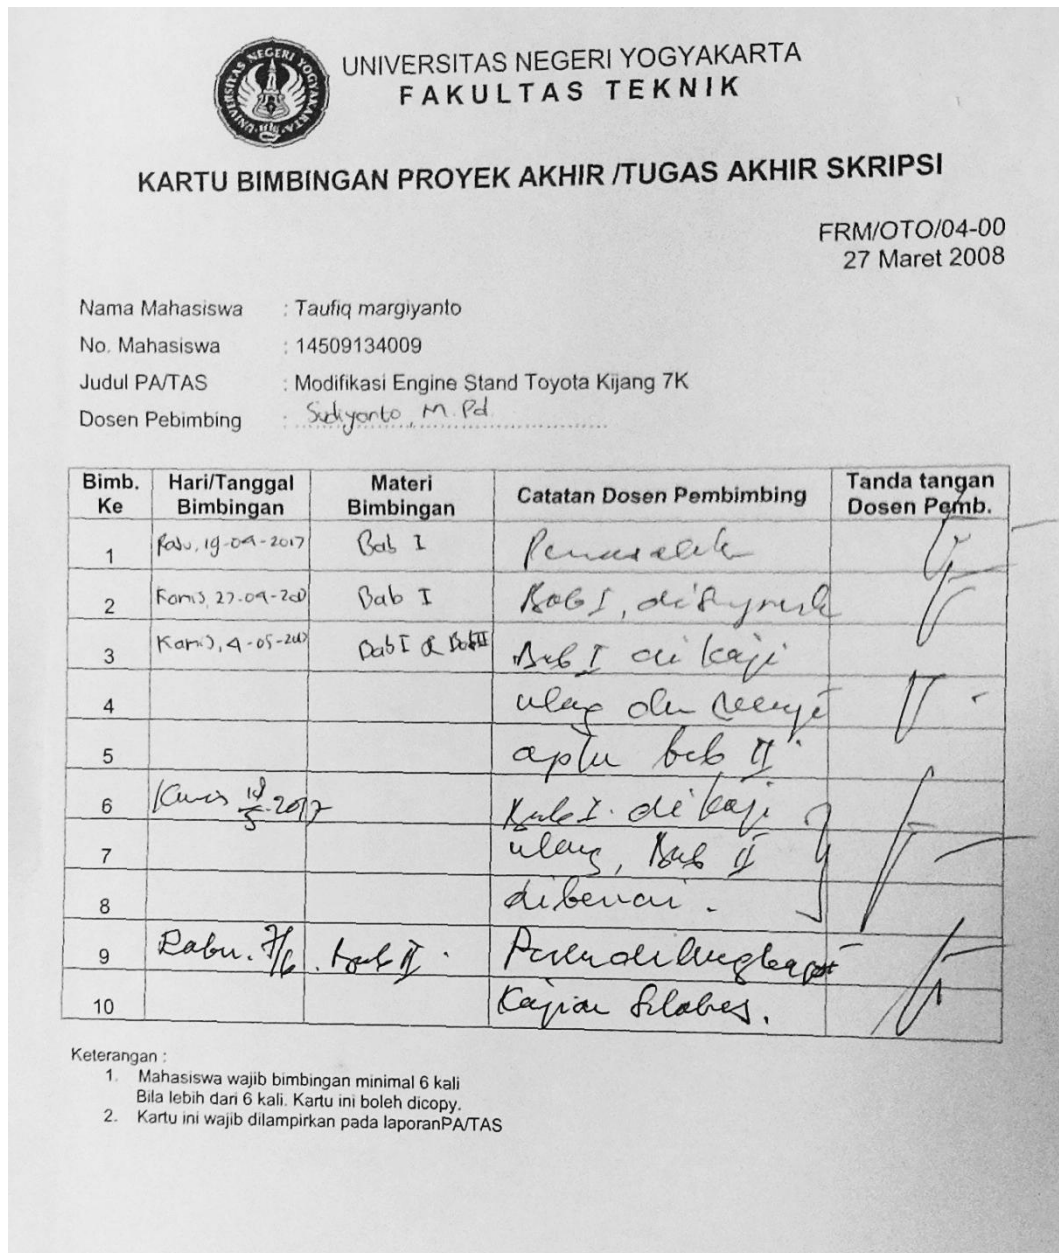 UNIVERSITAS NEGERI YOGYAKARTA
UNIVERSITAS NEGERI YOGYAKARTA
FAKULTAS TEKNIK
KARTU BIMBINGAN PROYEK AKHIR /TUGAS AKHIR SKRIPSI
FRM/OTO/04-00
27 Maret 2008
Nama Mahasiswa : Taufiq margiyanto
No. Mahasiswa : 14509134009
Judul PA/TAS : Modifikasi Engine Stand Toyota Kijang 7K
Dosen Pebimbing : Sudiyanto, M.Pd
Bimb. Ke Hari/Tanggal Bimbingan Materi Bimbingan Catatan Dosen Pembimbing Tanda tangan Dosen Pemb.
1 19-04-2017 Bab I
2 Kamis, 27-04- Bab I Bab I,
3 Kamis, 4-05- Bab I & Bab II Bab I di kaji
4 ulang
5 bab II.
6 Kamis 18/5-2017 Bab I. di kaji
7 ulang, Bab II
8
9 Rabu. 7/6. Bab II.
10 Kajian Silabus.
Keterangan :
1. Mahasiswa wajib bimbingan minimal 6 kali
Bila lebih dari 6 kali. Kartu ini boleh dicopy.
2. Kartu ini wajib dilampirkan pada laporanPA/TAS